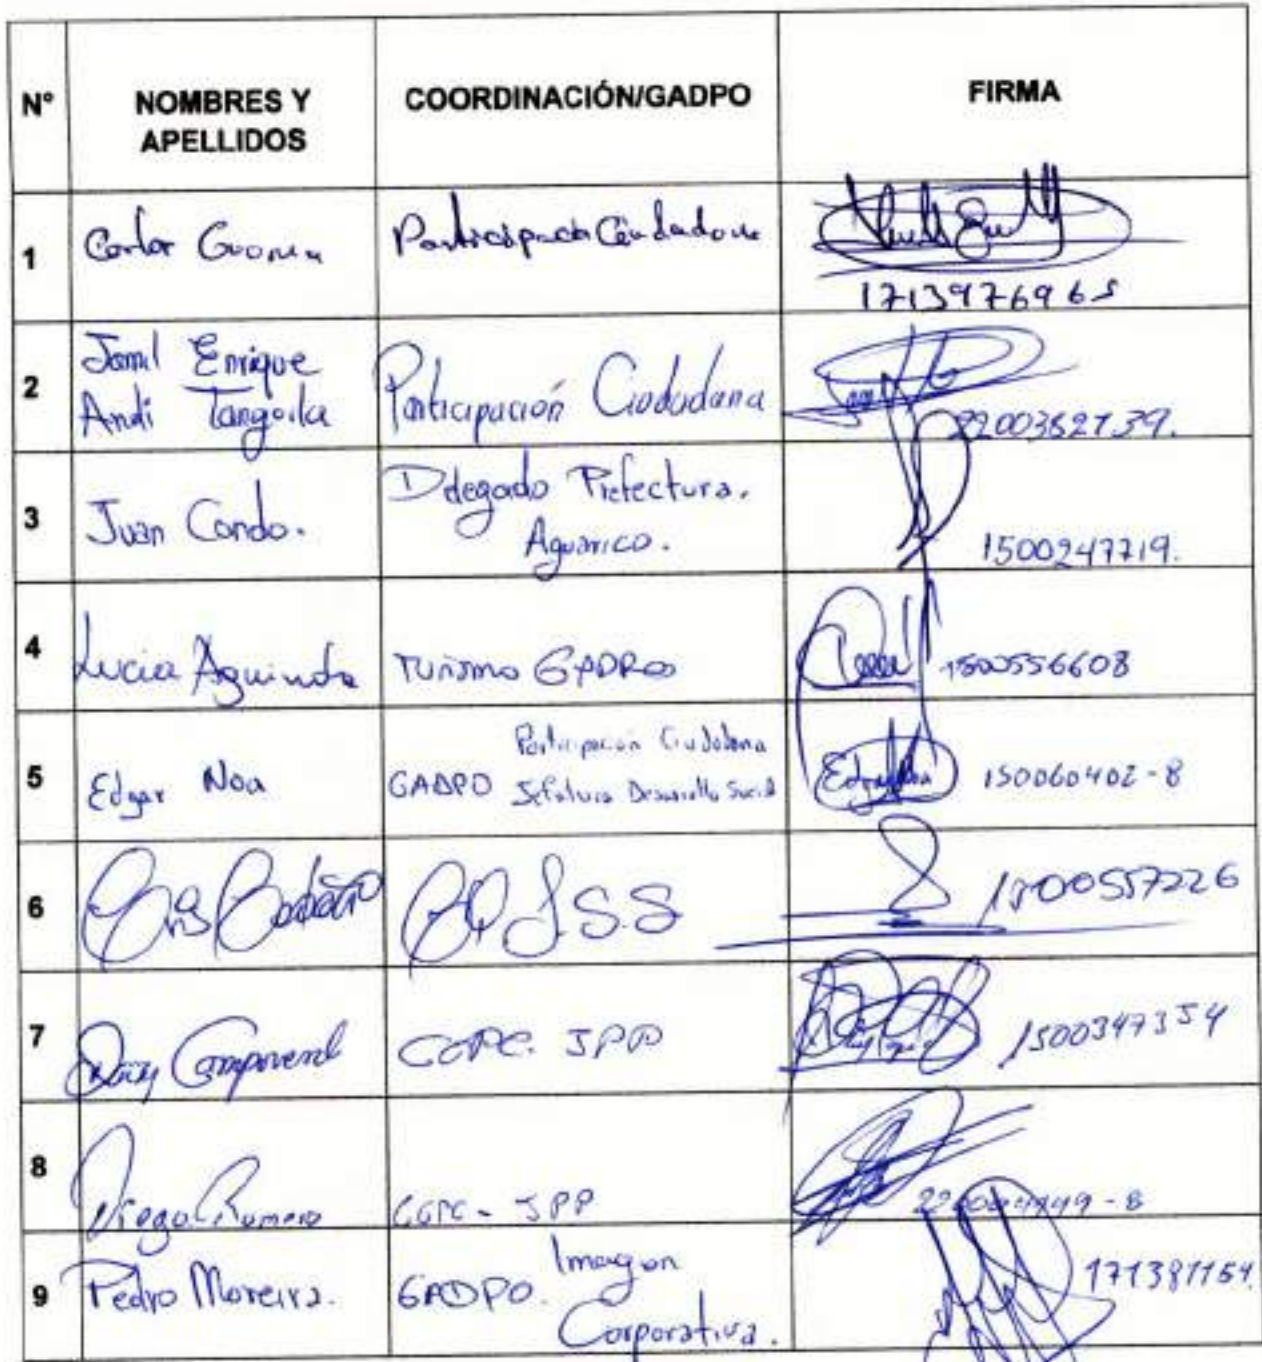 N° NOMBRES Y APELLIDOS COORDINACIÓN/GADPO FIRMA
1 Carlos Participación Ciudadana 1713976965
2 Jamil Enrique
Andi Tanguila Participación Ciudadana
3 Juan Condo. Delegado Prefectura.
Aguarico. 1500247719.
4 Lucia Aguinda Turismo 1500556608
5 Edgar Noa GADPO Participación Ciudadana
Jefatura Desarrollo Social 150060402-8
6 1500557226
7 Campoverde CGPC. JPP 1500347354
8 Diego Romero CGPC - JPP
9 Pedro Moreira. GADPO. Imagen
Corporativa. 171381154